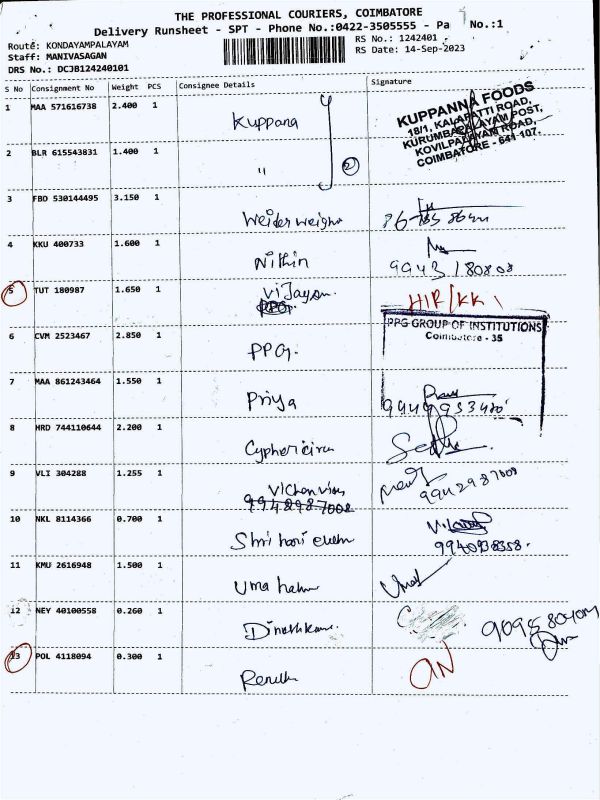 THE PROFESSIONAL COURIERS, COIMBATORE
Delivery Runsheet - SPT - Phone No.:0422-3505555 - Pa No.:1
Route: KONDAYAMPALAYAM
RS No.: 1242401
Staff: MANIVASAGAN
RS Date: 14-Sep-2023
DRS No.: DCJB124240101
S No Consignment No Weight PCS Consignee Details Signature
1 MAA 571616738 2.400 1 Kuppana
KUPPANNA FOODS
18/1, KALAPATTI ROAD,
KURUMBAPALAYAM POST,
KOVILPALAYAM ROAD,
COIMBATORE - 641 107.
2 BLR 615543831 1.400 1 " 2
3 FBD 530144495 3.150 1
4 KKU 400733 1.600 1 Nithin
9943180808
5 TUT 180987 1.650 1 Vijayan
6 CVM 2523467 2.850 1 PPG.
PPG GROUP OF INSTITUTIONS
Coimbatore - 35
7 MAA 861243464 1.550 1 Priya
8 HRD 744110644 2.200 1
9 VLI 304288 1.255 1
9942987008
10 NKL 8114366 0.700 1 Shri hari
11 KMU 2616948 1.500 1 Uma
12 NEY 40100558 0.260 1
13 POL 4118094 0.300 1